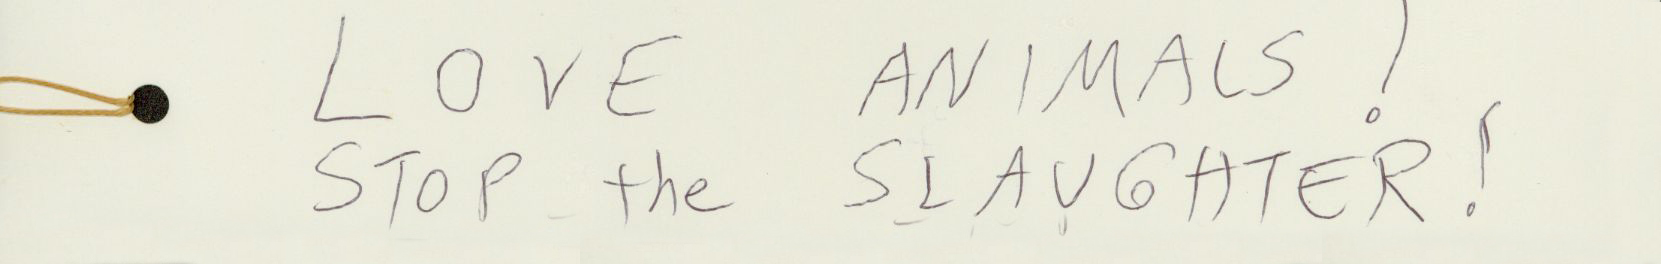 LOVE ANIMALS!
STOP the SLAUGHTER!